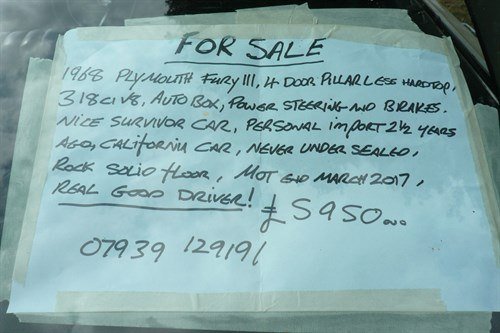 FOR SALE
1968 PLYMOUTH FURY III, 4 DOOR PILLARLESS HARDTOP,
318ci V8, AUTO BOX, POWER STEERING AND BRAKES.
NICE SURVIVOR CAR, PERSONAL IMPORT 2½ YEARS
AGO, CALIFORNIA CAR, NEVER UNDER SEALED,
ROCK SOLID FLOOR, MOT END MARCH 2017,
REAL GOOD DRIVER! £5950...
07939 129191